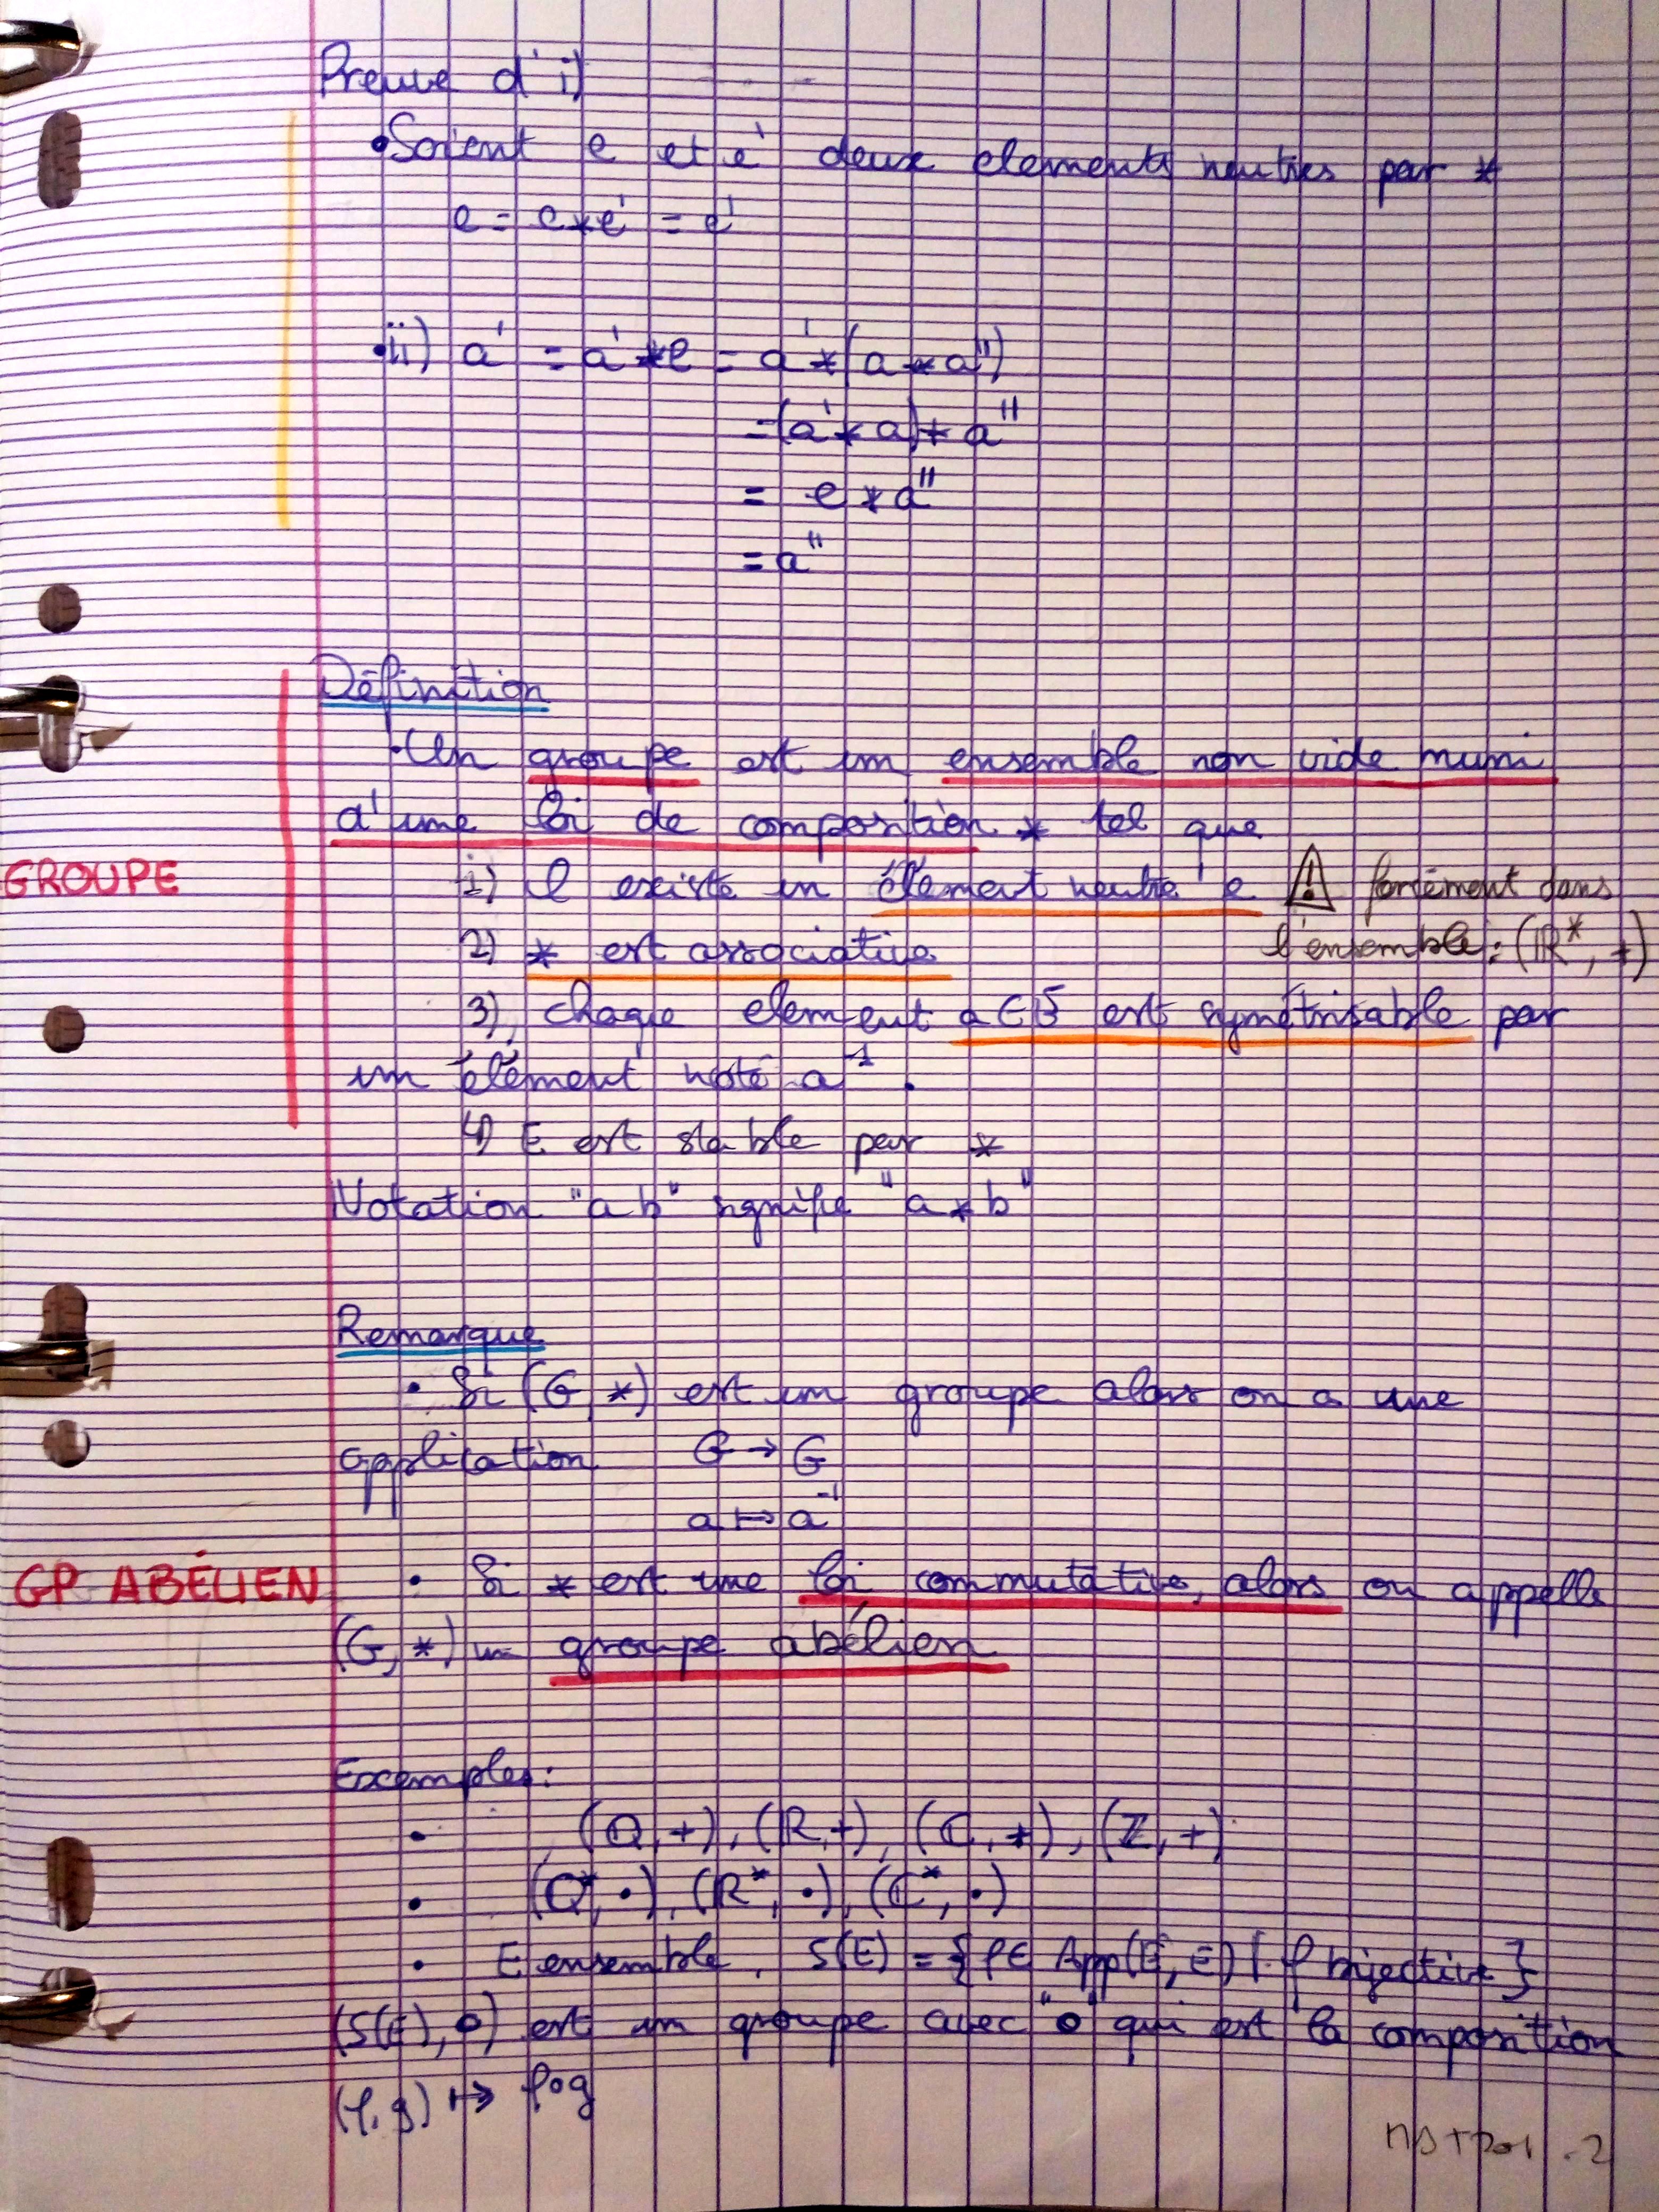 Preuve d'i)
• Soient e et e' deux elements neutres par *
e = e * e' = e'
• ii) a' = a' * e = a' * (a * a'')
= (a' * a) * a''
= e * a''
= a''
Définition
• Un groupe est un ensemble non vide muni
d'une loi de composition * tel que
GROUPE
1) Il existe un élément neutre e ⚠ forcément dans
l'ensemble : (ℝ*, +)
2) * est associative
3) chaque element a ∈ E est symétrisable par
un élément noté a⁻¹.
4) E est stable par *
Notation "ab" signifie "a * b"
Remarque
• Si (G, *) est un groupe alors on a une
application G → G
a ↦ a⁻¹
GP ABÉLIEN
• Si * est une loi commutative, alors on appelle
(G, *) un groupe abélien
Exemples :
• (ℚ, +), (ℝ, +), (ℂ, +), (ℤ, +)
• (ℚ*, •), (ℝ*, •), (ℂ*, •)
• E ensemble, S(E) = {f ∈ App(E, E) | f bijective}
(S(E), o) est un groupe avec "o" qui est la composition
(f, g) ↦ fog